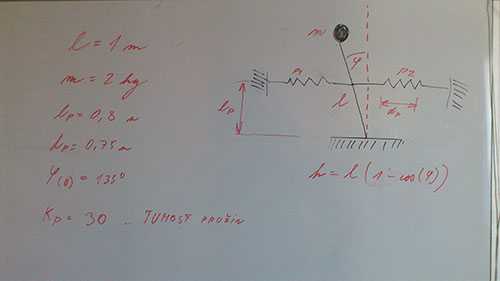 l = 1 m
m = 2 kg
lp = 0,8 m
dp = 0,75 m
φ(0) = 135°
Kp = 30 ... TUHOST PRUŽIN
m
φ
P1
P2
lp
l
dp
h = l (1 - cos(φ))